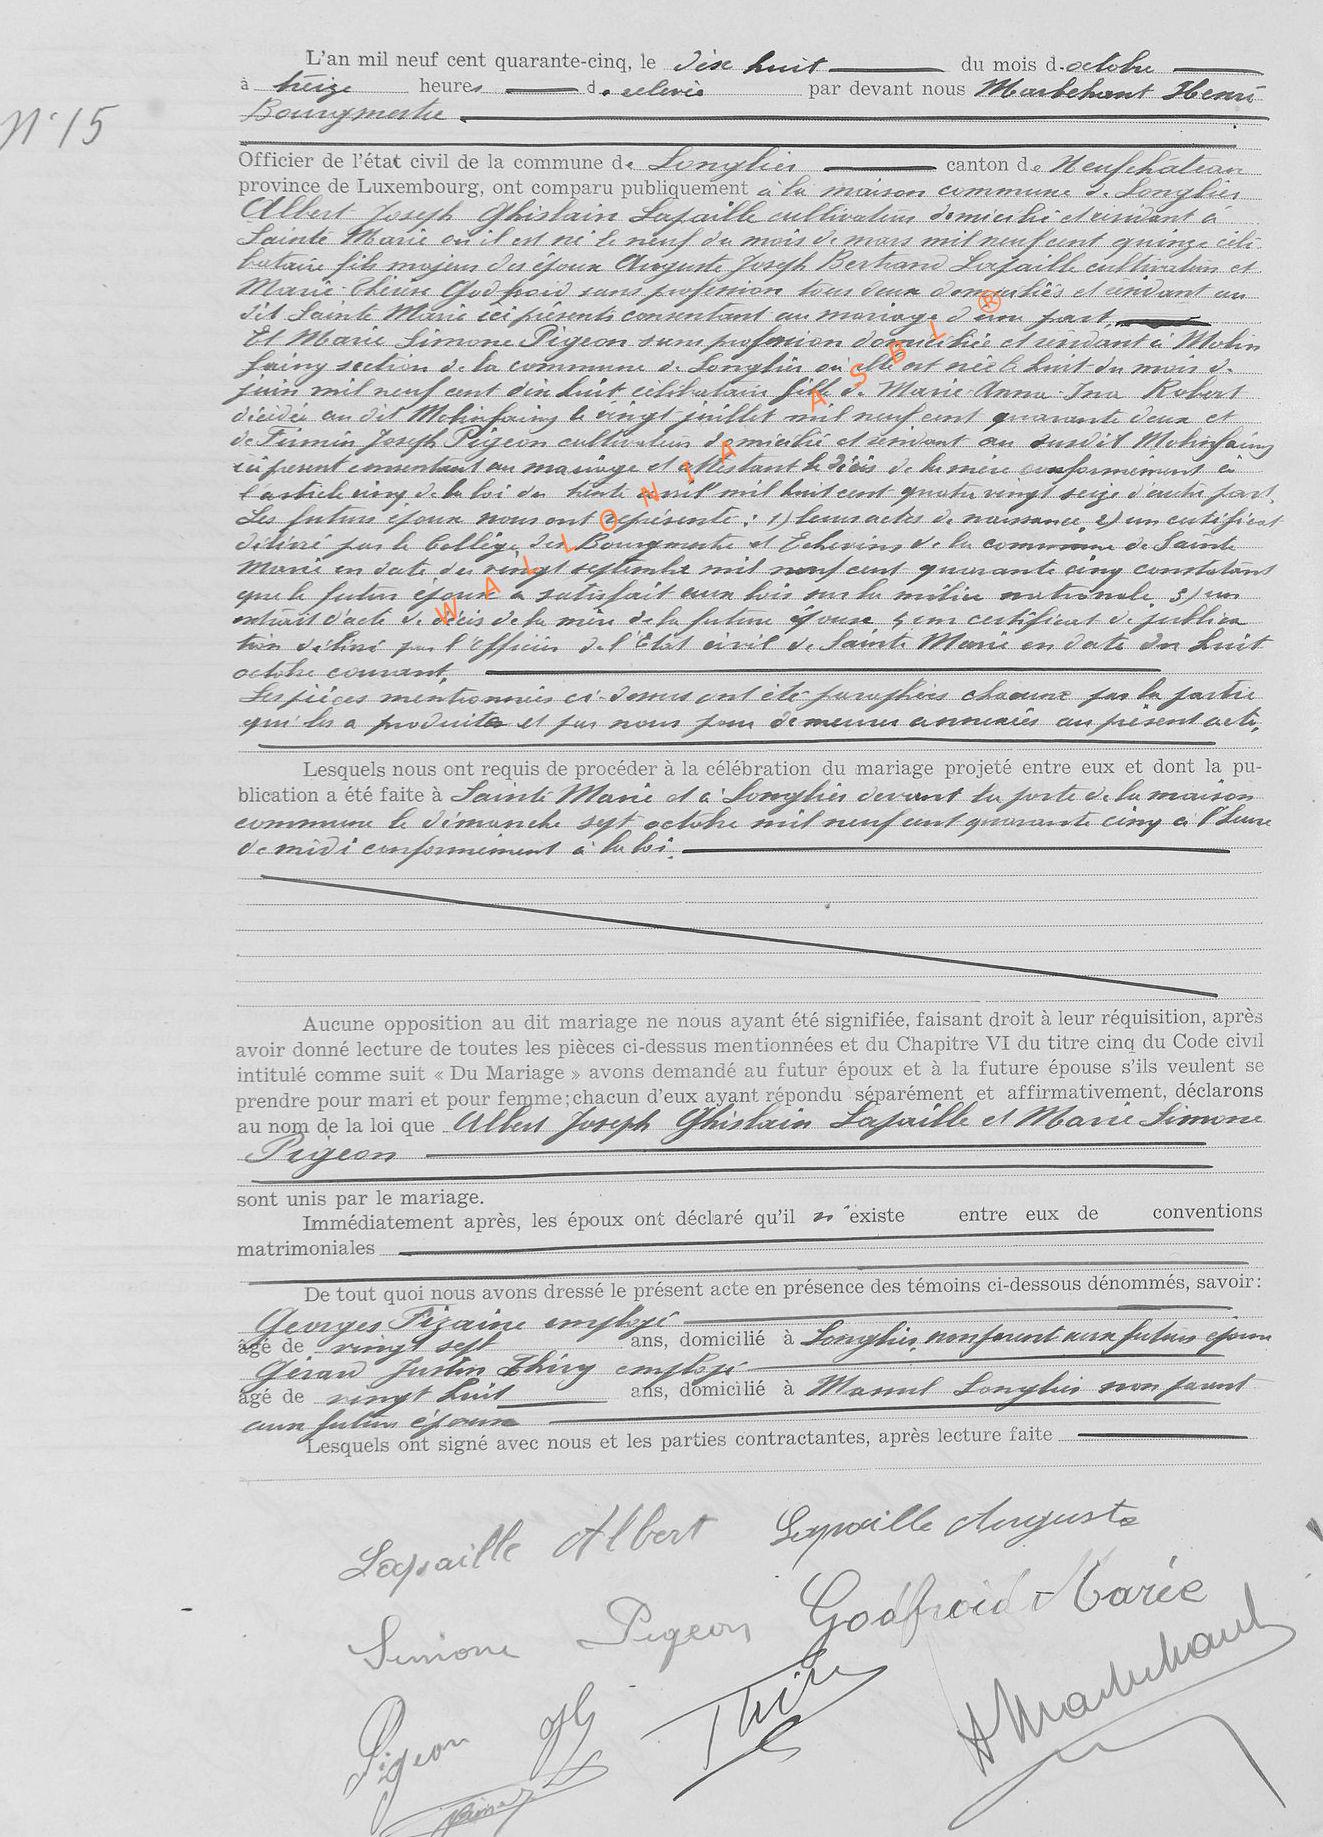 N° 15
L'an mil neuf cent quarante-cinq, le dix huit du mois d'octobre
à treize heures de relevée par devant nous Marbehant Henri
Bourgmestre
Officier de l'état civil de la commune de Longlier canton de Neufchâteau
province de Luxembourg, ont comparu publiquement à la maison commune de Longlier
Albert Joseph Ghislain Lapaille cultivateur domicilié et résidant à
Sainte Marie où il est né le neuf du mois de mars mil neuf cent quinze céli-
bataire fils majeur des époux Auguste Joseph Bertrand Lapaille cultivateur et
Marie Godfroid sans profession tous deux domiciliés et résidant au
dit Sainte Marie ici présents consentant au mariage d'une part
Et Marie Simone Pigeon sans profession domiciliée et résidant à Molin
faing section de la commune de Longlier où elle est née le huit du mois de
juin mil neuf cent dix huit célibataire fille de Marie Anna Ina Robert
décédée au dit Molinfaing le vingt juillet mil neuf cent quarante deux et
de Firmin Joseph Pigeon cultivateur domicilié et résidant au susdit Molinfaing
ici présent consentant au mariage et attestant le décès de la mère conformément à
l'article cinq de la loi du trente avril mil huit cent quatre vingt seize d'autre part.
Les futurs époux nous ont représenté : 1) leurs actes de naissance, 2) un certificat
délivré par le Collège des Bourgmestre et Echevins de la commune de Sainte
Marie en date du vingt septembre mil neuf cent quarante cinq constatant
que le futur époux a satisfait aux lois sur la milice nationale 3) un
extrait d'acte de décès de la mère de la future épouse 4) un certificat de publica
tion délivré par l'Officier de l'Etat civil de Sainte Marie en date du huit
octobre courant.
Les pièces mentionnées ci-dessus ont été paraphées chacune par la partie
qui les a produites et par nous pour demeurer annexées au présent acte.
Lesquels nous ont requis de procéder à la célébration du mariage projeté entre eux et dont la pu-
blication a été faite à Sainte Marie et à Longlier devant la porte de la maison
commune le dimanche sept octobre mil neuf cent quarante cinq à l'heure
de midi conformément à la loi.
Aucune opposition au dit mariage ne nous ayant été signifiée, faisant droit à leur réquisition, après
avoir donné lecture de toutes les pièces ci-dessus mentionnées et du Chapitre VI du titre cinq du Code civil
intitulé comme suit « Du Mariage » avons demandé au futur époux et à la future épouse s'ils veulent se
prendre pour mari et pour femme; chacun d'eux ayant répondu séparément et affirmativement, déclarons
au nom de la loi que Albert Joseph Ghislain Lapaille et Marie Simone
Pigeon
sont unis par le mariage.
Immédiatement après, les époux ont déclaré qu'il n'existe entre eux de conventions
matrimoniales
De tout quoi nous avons dressé le présent acte en présence des témoins ci-dessous dénommés, savoir :
Georges Pizaine employé
âgé de vingt sept ans, domicilié à Longlier, non parent aux futurs époux
Gérard Justin Thiry employé
âgé de vingt huit ans, domicilié à Massul Longlier non parent
aux futurs époux
Lesquels ont signé avec nous et les parties contractantes, après lecture faite
Lapaille Albert Lapaille Auguste
Simone Pigeon Godfroid Marie
Pigeon Thiry H Marbehant
WALLONIA ASBL ®